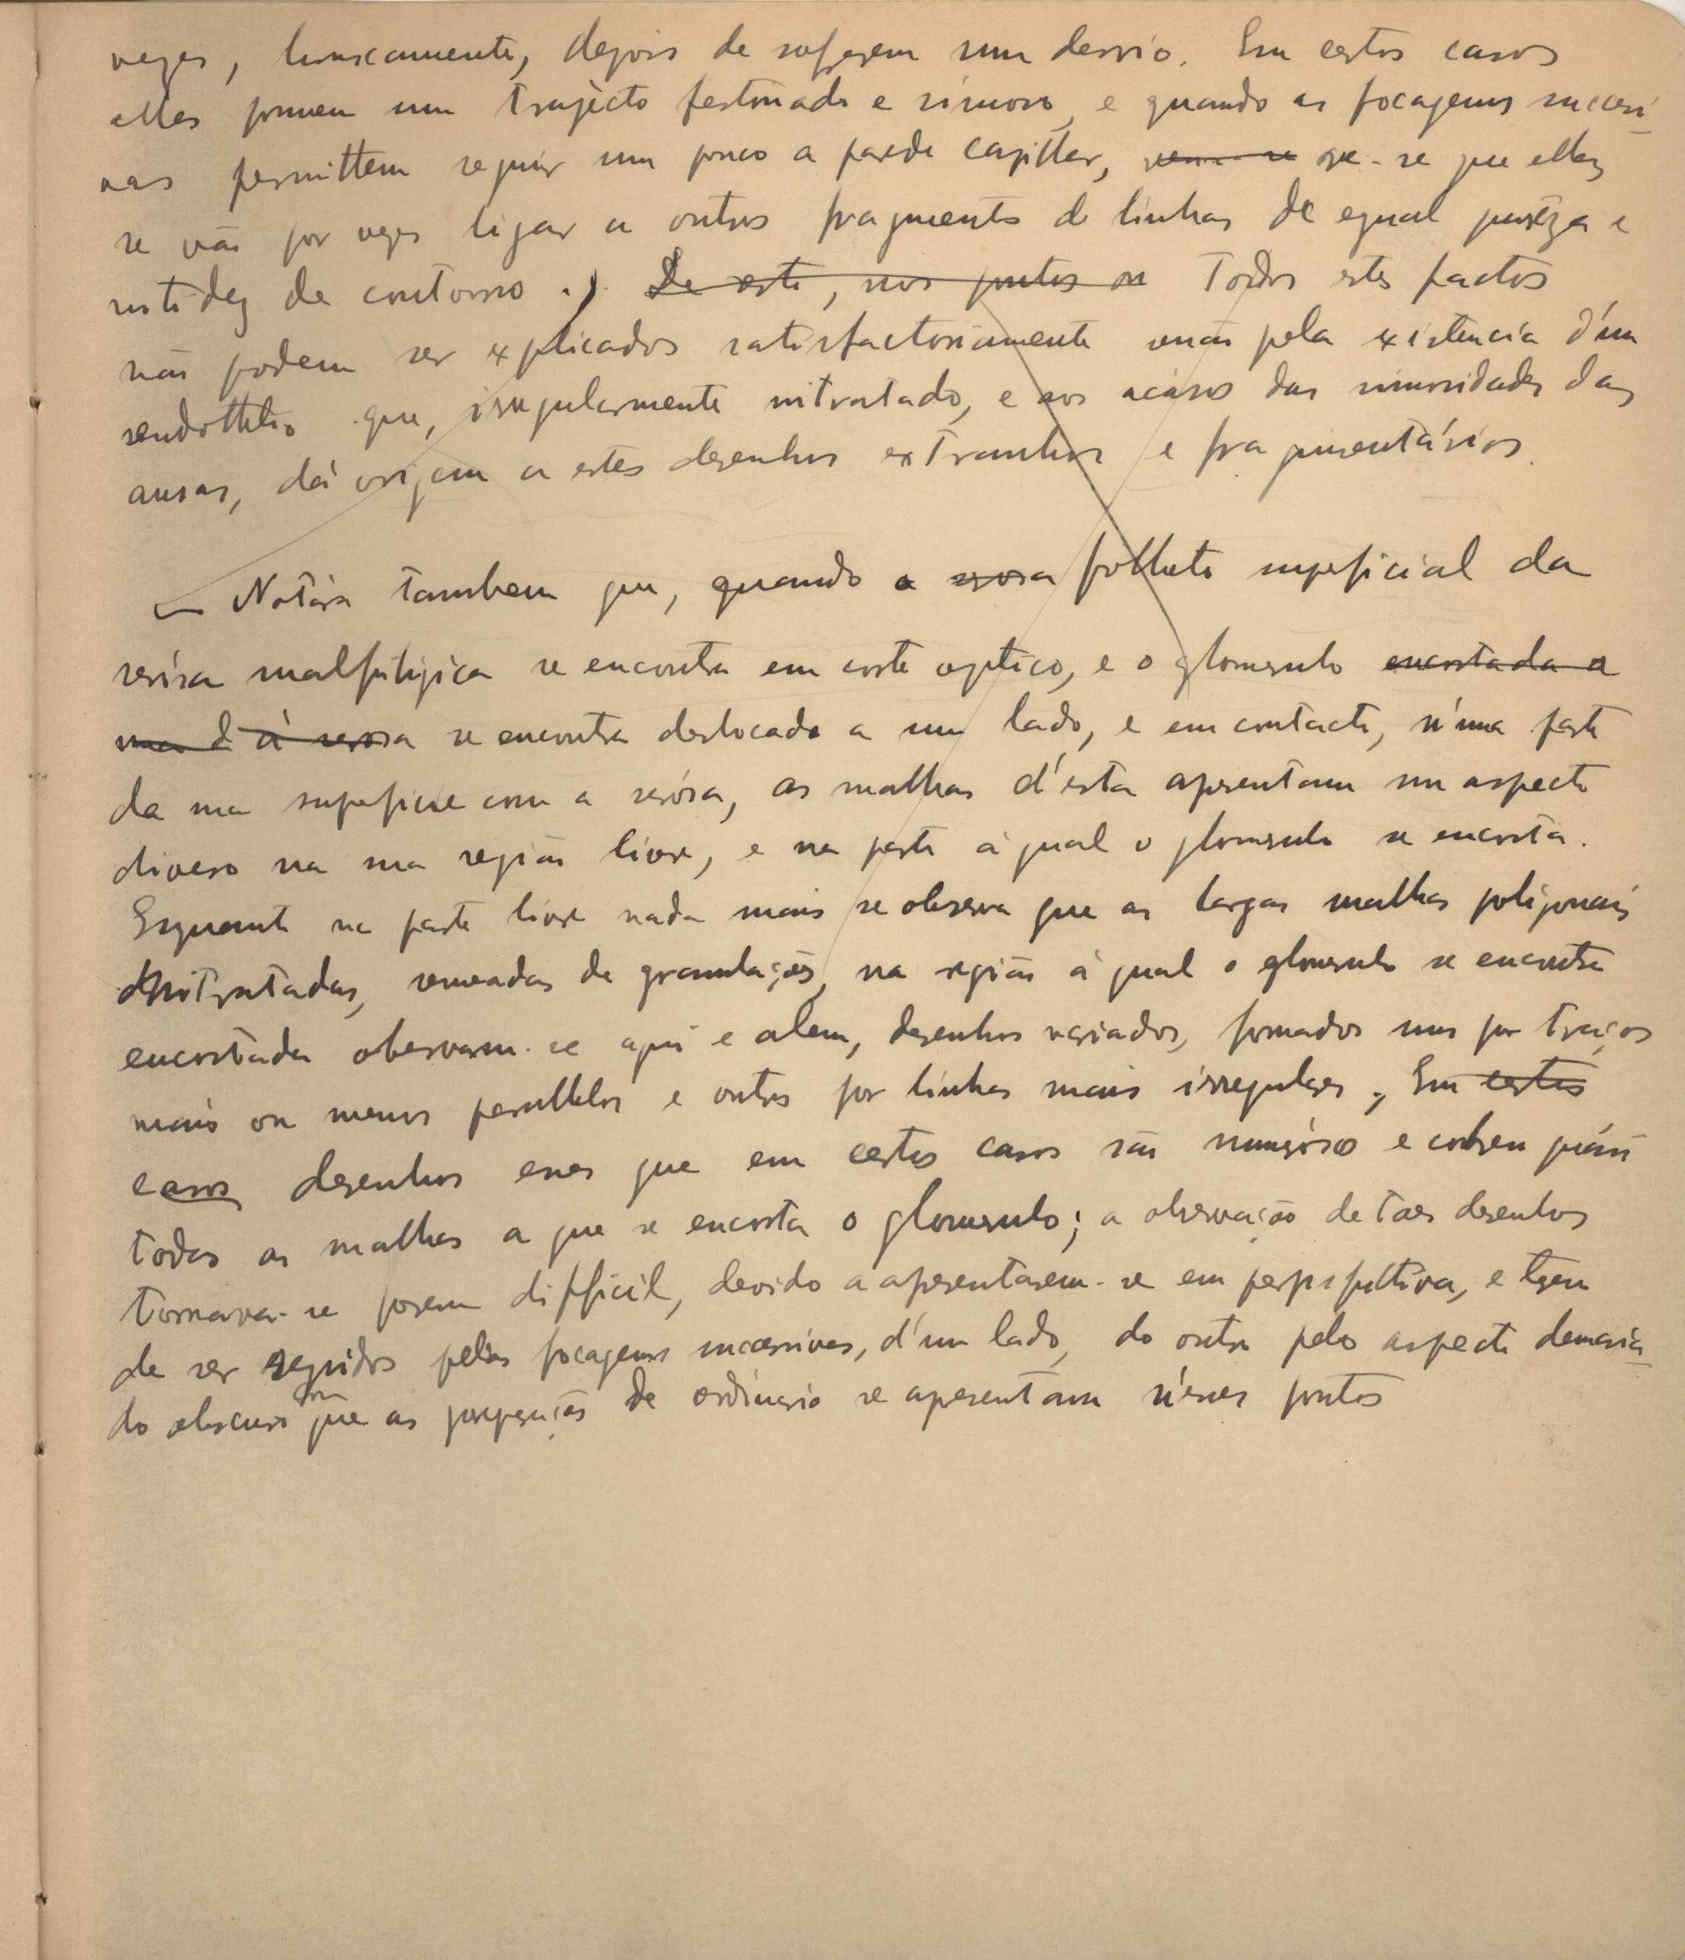 vezes, bruscamente, depois de soffrerem um desvio. Em certos casos
elles formam um trajècto festonado e sinuoso, e quando as focagens successi
vas permittem seguir um pouco a parede capillar, vê-se que elles
se vão por vezes ligar a outros fragmentos de linhas de egual purêza e
nitidez de contorno .) De este, nos pontos on Todos estes factos
não podem ser explicados satisfactoriamente senão pela existencia d'um
endothelio que, irregularmente nitratado, e aos acasos das sinuosidades das
ansas, dá origem a estes desenhos extranhos e fragmentários.
— Notára tambem que, quando o serosa folheto superficial da
serósa malpighigica se encontra em corte optico, e o glomerulo encostada a
uma d à serosa se encontra deslocado a um lado, e em contacto, n'uma parte
da sua superficie com a serósa, as malhas d'esta apresentam um aspecto
diverso na sua região livre, e na parte á qual o glomerulo se encosta.
Emquanto na parte livre nada mais se observa que as largas malhas poligonais
nitratadas, semeadas de granulações, na região á qual o glomerulo se encontra
encostada observam-se aqui e alem, desenhos variados, formados uns por traços
mais ou menos parallelos e outros por linhas mais irregulares, Em certos
casos desenhos esses que em certos casos são numerósos e cobrem quási
todas as malhas a que se encosta o glomerulo; a observação de taes desenhos
tornava-se porem difficil, devido a apresentarem-se em perspectiva, e terem
de ser seguidos pelas focagens successivas, d'um lado, do outro pelo aspecto demasia
do obscuro com que as preparações de ordinario se apresentam n'esses pontos